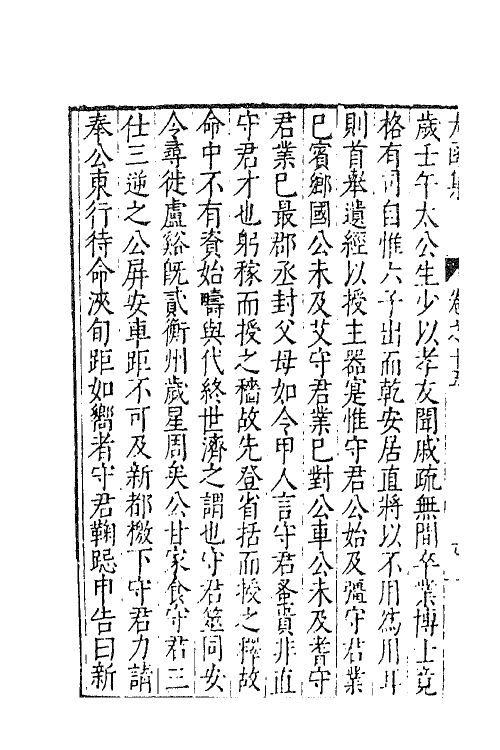 太函集 卷之十五
歲壬午太公生少以孝友聞戚疏無間卒業博士竟
格有司自惟六子出而乾安居直將以不用為用耳
則首舉遺經以授主器寔惟守君公始及彊守君業
已賓鄉國公未及艾守君業已對公車公未及耆守
君業已最郡丞封父母如令甲人言守君蚤貴非直
守君才也躬稼而授之穡故先登省括而授之釋故
命中不有資始疇與代終世濟之謂也守君筮同安
令尋徙盧谿既貳衡州歲星周矣公甘家食守君三
仕三逆之公屏安車距不可及新都檄下守君力請
奉公東行待命浹旬距如嚮者守君鞠跽申告曰新